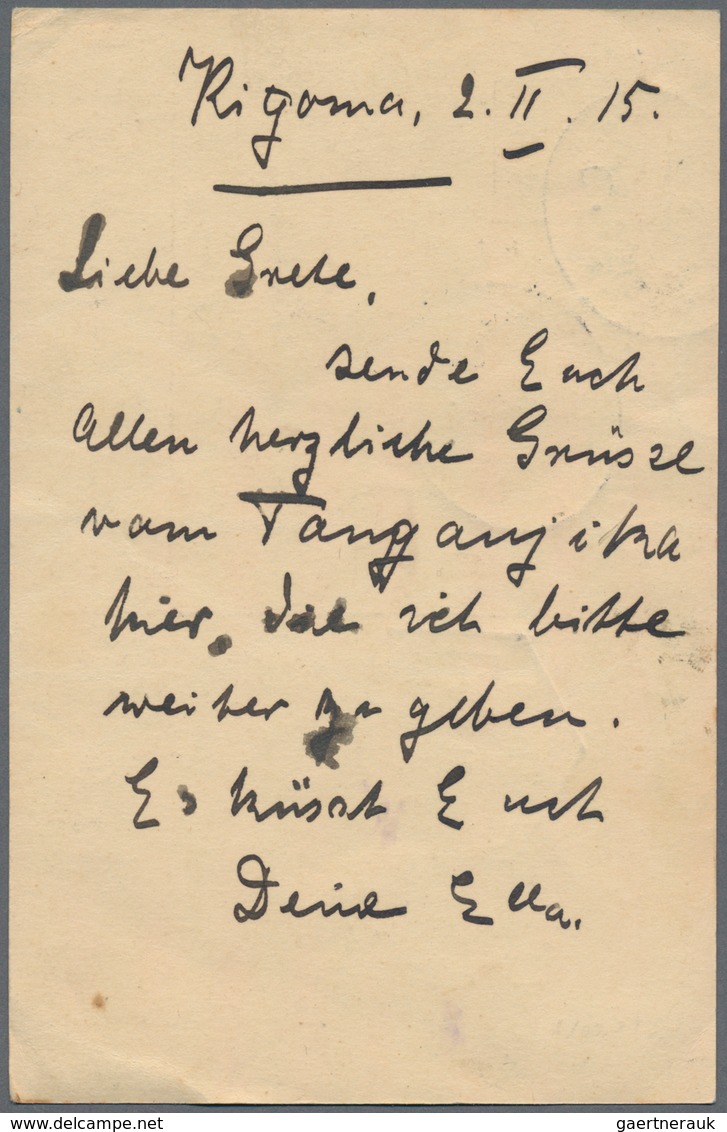 Kigoma, 2. II. 15.
Liebe Grete,
sende Euch
Allen herzliche Grüsse
vom Tanganjika
hier, die ich bitte
weiter zu geben.
Es küsst Euch
Deine Ella.
www.delcampe.net
gaertnerauk